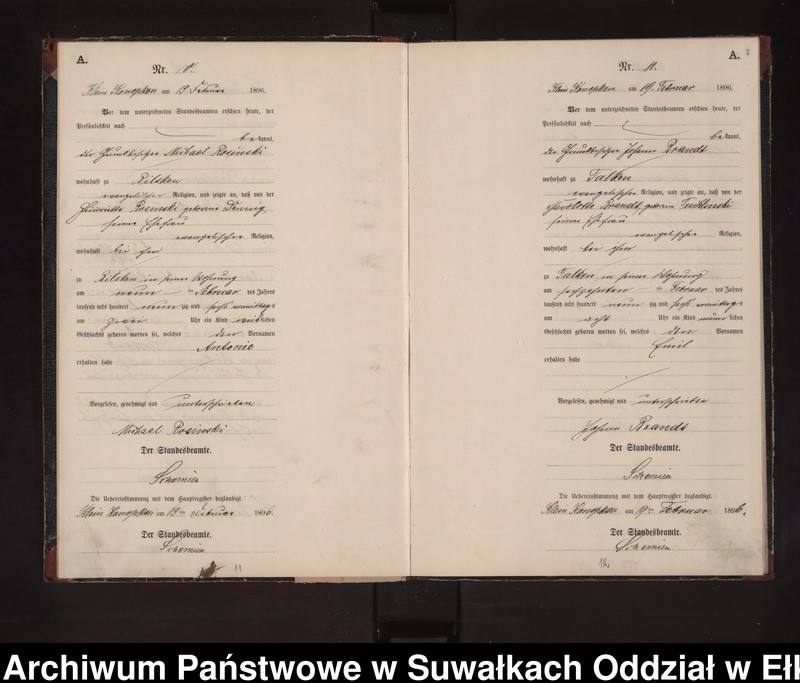 A.
Nr. 10.
Klein Konopken am 13 Februar 1896.
Vor dem unterzeichneten Standesbeamten erschien heute, der
Persönlichkeit nach
bekannt,
der Grundbesitzer Michael Rosinski
wohnhaft zu Rilsken
evangelischer Religion, und zeigte an, daß von der
Rosinski geborene
seine Ehefrau
evangelischer Religion,
wohnhaft bei ihm
zu Rilsken in seiner Wohnung
am neun ten Februar des Jahres
tausend acht hundert neun zig und sechs vormittags
um zwei Uhr ein Kind weiblichen
Geschlechts geboren worden sei, welches den Vornamen
Antonie
erhalten habe
Vorgelesen, genehmigt und unterschrieben
Michael Rosinski
Der Standesbeamte.
Schemien
Die Uebereinstimmung mit dem Hauptregister beglaubigt.
Klein Konopken am 13ten Februar 1896.
Der Standesbeamte.
Schemien
11
A.
7
Nr. 11.
Klein Konopken am 19. Februar 1896.
Vor dem unterzeichneten Standesbeamten erschien heute, der
Persönlichkeit nach
bekannt,
der Grundbesitzer Johann Brandt
wohnhaft zu Talken
evangelischer Religion, und zeigte an, daß von der
Charlotte Brandt, geborene
seine Ehefrau
evangelischer Religion,
wohnhaft bei ihm
zu Talken in seiner Wohnung
am sechzehnten ten Februar des Jahres
tausend acht hundert neun zig und sechs vormittags
um acht Uhr ein Kind männlichen
Geschlechts geboren worden sei, welches den Vornamen
Emil
erhalten habe
Vorgelesen, genehmigt und unterschrieben
Johann Brandt
Der Standesbeamte.
Schemien
Die Uebereinstimmung mit dem Hauptregister beglaubigt.
Klein Konopken am 19ten Februar 1896.
Der Standesbeamte.
Schemien
12
Archiwum Państwowe w Suwałkach Oddział w Ełk